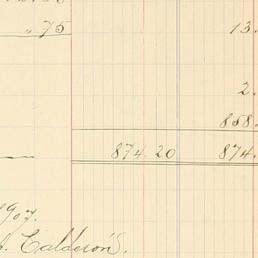 „ 75 13.
2.
858.
874.20 874.
1907.
A. Calderón S.